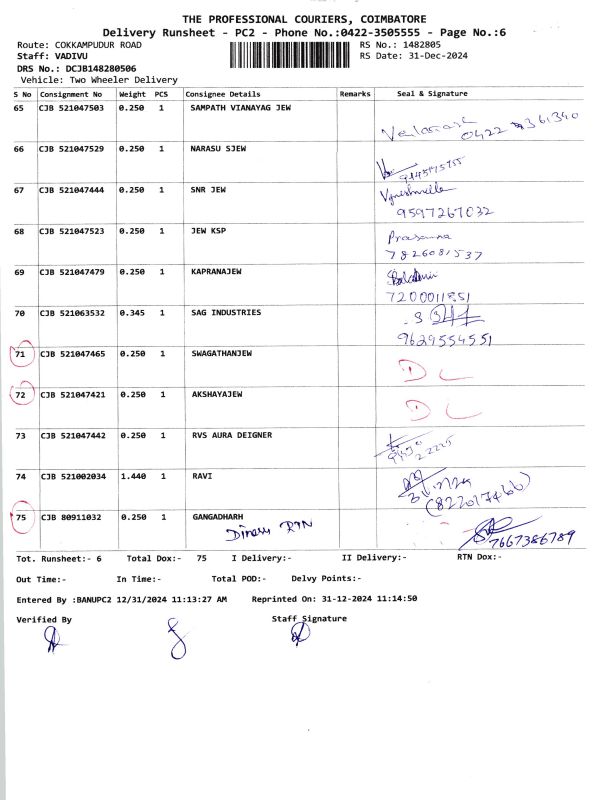 THE PROFESSIONAL COURIERS, COIMBATORE
Delivery Runsheet - PC2 - Phone No.:0422-3505555 - Page No.:6
Route: COKKAMPUDUR ROAD RS No.: 1482805
Staff: VADIVU RS Date: 31-Dec-2024
DRS No.: DCJB148280506
Vehicle: Two Wheeler Delivery
S No Consignment No Weight PCS Consignee Details Remarks Seal & Signature
65 CJB 521047503 0.250 1 SAMPATH VIANAYAG JEW
0422
66 CJB 521047529 0.250 1 NARASU SJEW
67 CJB 521047444 0.250 1 SNR JEW
9597267032
68 CJB 521047523 0.250 1 JEW KSP Prasanna
7826081537
69 CJB 521047479 0.250 1 KAPRANAJEW
7200011851
70 CJB 521063532 0.345 1 SAG INDUSTRIES
9629554551
71 CJB 521047465 0.250 1 SWAGATHANJEW D L
72 CJB 521047421 0.250 1 AKSHAYAJEW D L
73 CJB 521047442 0.250 1 RVS AURA DEIGNER
74 CJB 521002034 1.440 1 RAVI
75 CJB 80911032 0.250 1 GANGADHARH
7667386789
Tot. Runsheet:- 6 Total Dox:- 75 I Delivery:- II Delivery:- RTN Dox:-
Out Time:- In Time:- Total POD:- Delvy Points:-
Entered By :BANUPC2 12/31/2024 11:13:27 AM Reprinted On: 31-12-2024 11:14:50
Verified By Staff Signature